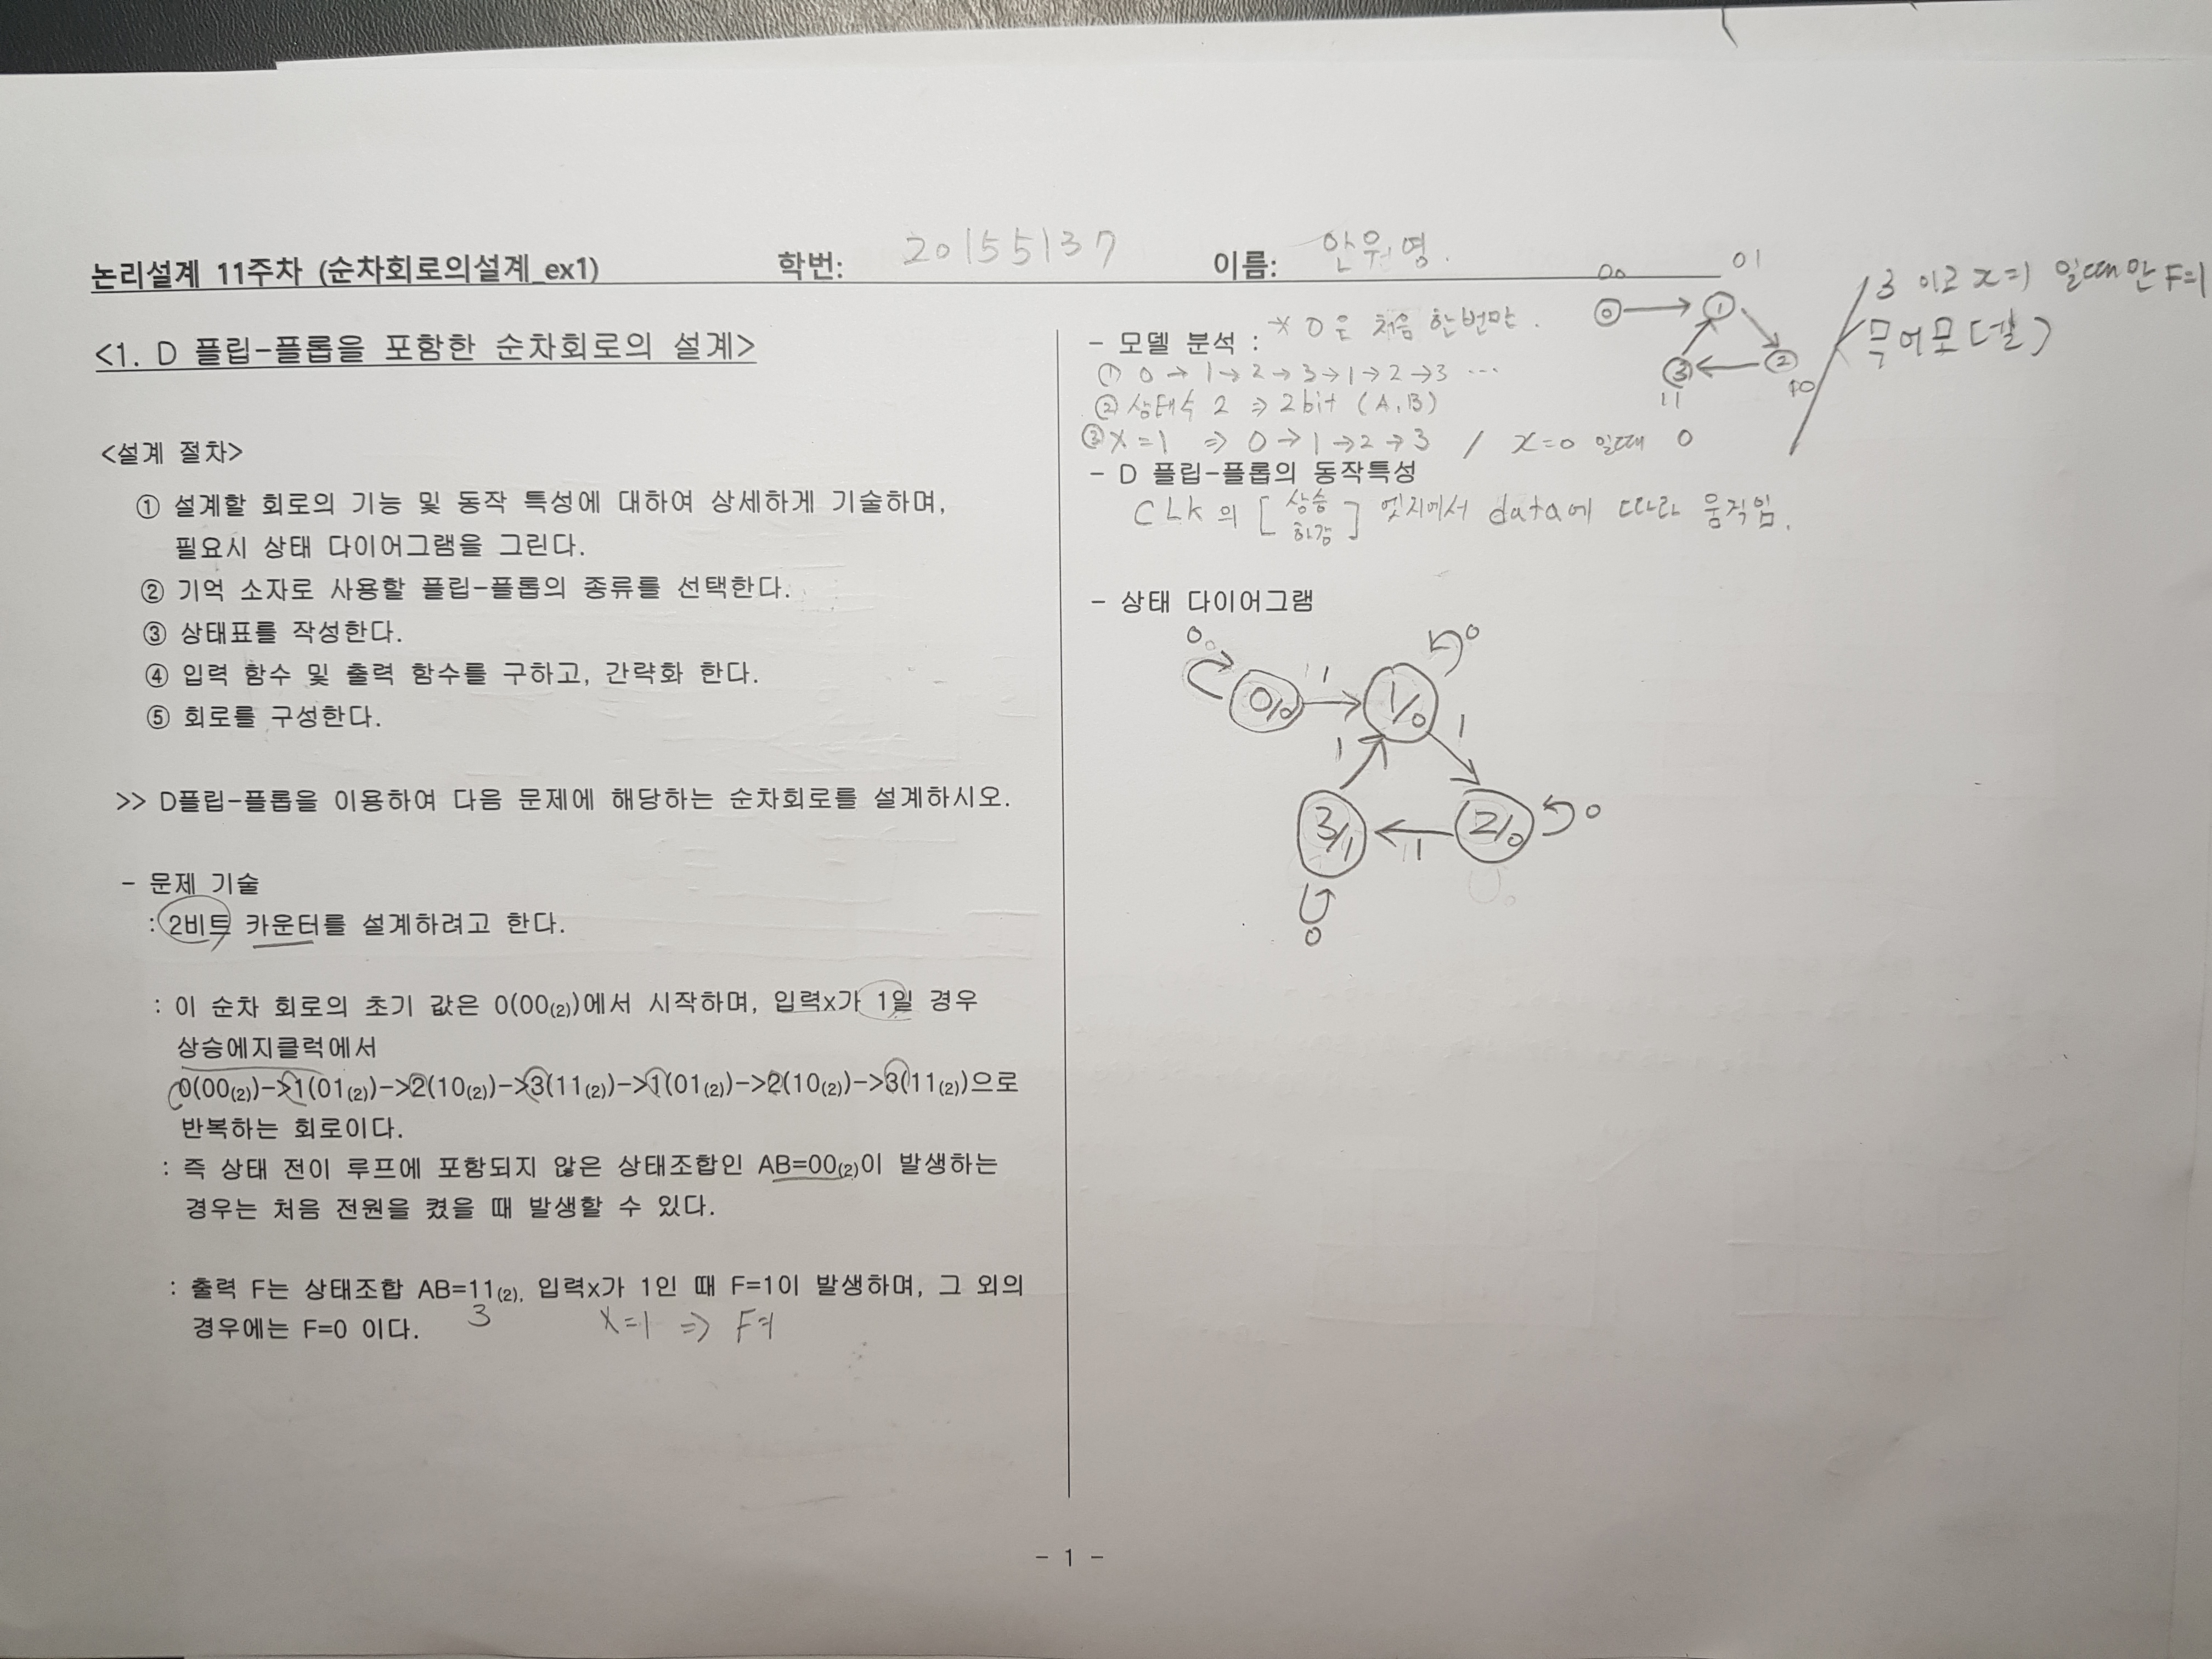 논리설계 11주차 (순차회로의설계_ex1) 학번: 20155137 이름: 안우영.
<1. D 플립-플롭을 포함한 순차회로의 설계>
<설계 절차>
① 설계할 회로의 기능 및 동작 특성에 대하여 상세하게 기술하며,
필요시 상태 다이어그램을 그린다.
② 기억 소자로 사용할 플립-플롭의 종류를 선택한다.
③ 상태표를 작성한다.
④ 입력 함수 및 출력 함수를 구하고, 간략화 한다.
⑤ 회로를 구성한다.
>> D플립-플롭을 이용하여 다음 문제에 해당하는 순차회로를 설계하시오.
- 문제 기술
: 2비트 카운터를 설계하려고 한다.
: 이 순차 회로의 초기 값은 0(00(2))에서 시작하며, 입력x가 1일 경우
상승에지클럭에서
0(00(2))->1(01(2))->2(10(2))->3(11(2))->1(01(2))->2(10(2))->3(11(2))으로
반복하는 회로이다.
: 즉 상태 전이 루프에 포함되지 않은 상태조합인 AB=00(2)이 발생하는
경우는 처음 전원을 켰을 때 발생할 수 있다.
: 출력 F는 상태조합 AB=11(2), 입력x가 1인 때 F=1이 발생하며, 그 외의
3
경우에는 F=0 이다.
x=1 => F=1
- 모델 분석 : * 0은 처음 한번만.
① 0→1→2→3→1→2→3 ...
② 상태수 2 => 2bit (A,B)
③ X=1 => 0→1→2→3 / x=0 일때 0
00
0
1
01
3
11
2
10
3 이고 x=1 일때만 F=1
무어모델)
- D 플립-플롭의 동작특성
CLK의 [상승/하강] 엣지에서 data에 따라 움직임.
- 상태 다이어그램
0
0/0
1
1/0
0
1
1
3/1
0
1
2/0
0
- 1 -